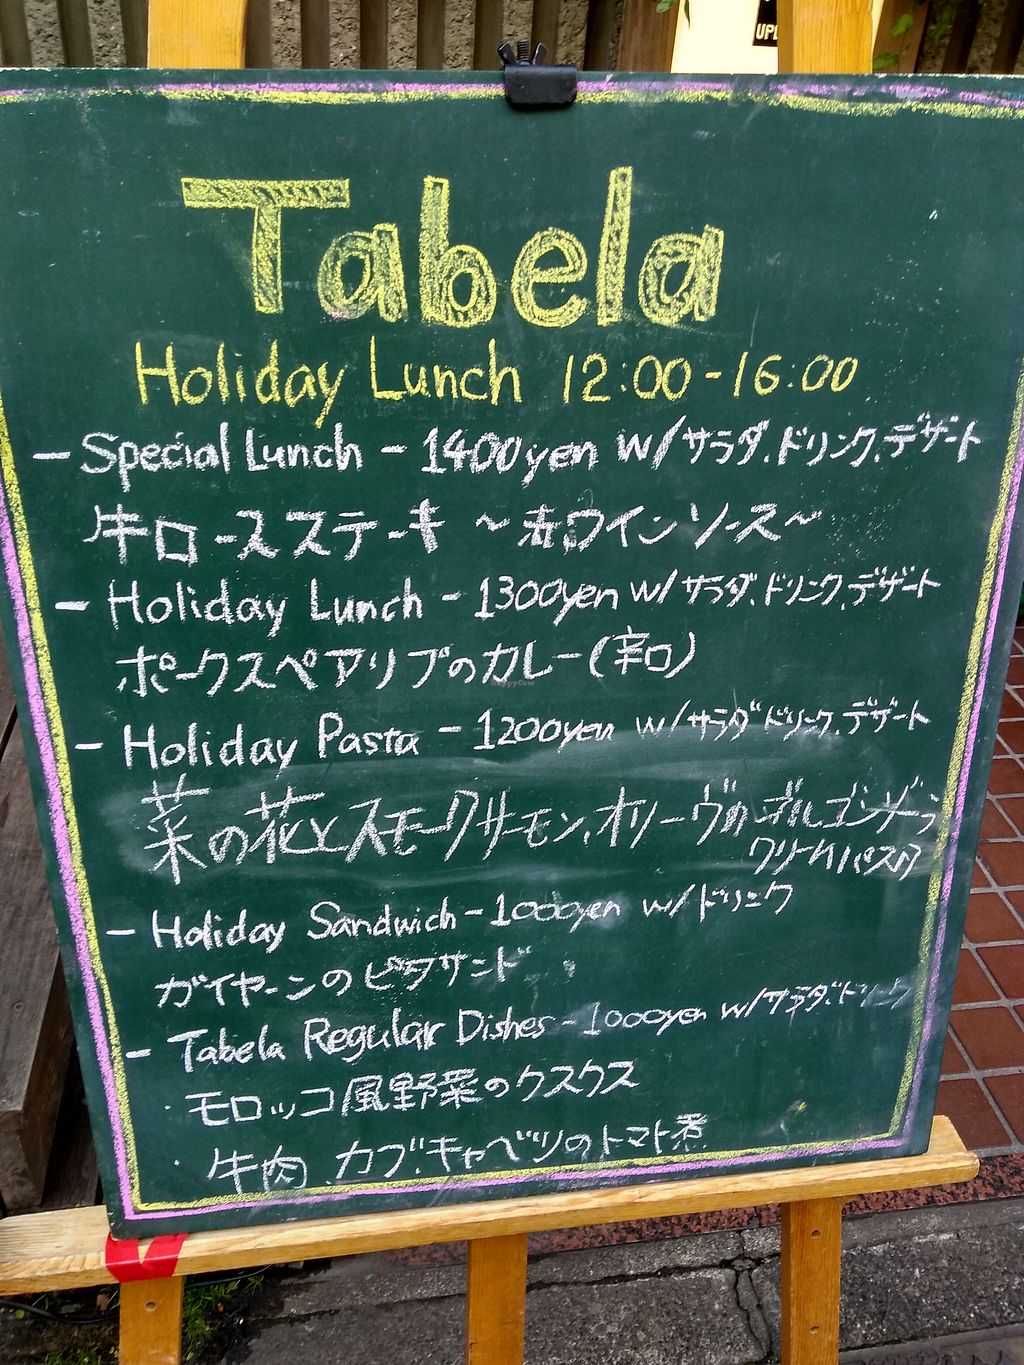 UPL
Tabela
Holiday Lunch 12:00-16:00
- Special Lunch - 1400yen w/サラダ、ドリンク、デザート
牛ロースステーキ ~赤ワインソース~
- Holiday Lunch - 1300yen w/サラダ、ドリンク、デザート
ポークスペアリブのカレー(辛口)
HappyCow
- Holiday Pasta - 1200yen w/サラダ ドリンク、デザート
菜の花とスモークサーモン、オリーヴのゴルゴンゾーラ
クリームパスタ
- Holiday Sandwich - 1000yen w/ドリンク
ガイヤーンのピタサンド
- Tabela Regular Dishes - 1000yen w/サラダ、ドリンク
・モロッコ風野菜のクスクス
・牛肉、カブ、キャベツのトマト煮